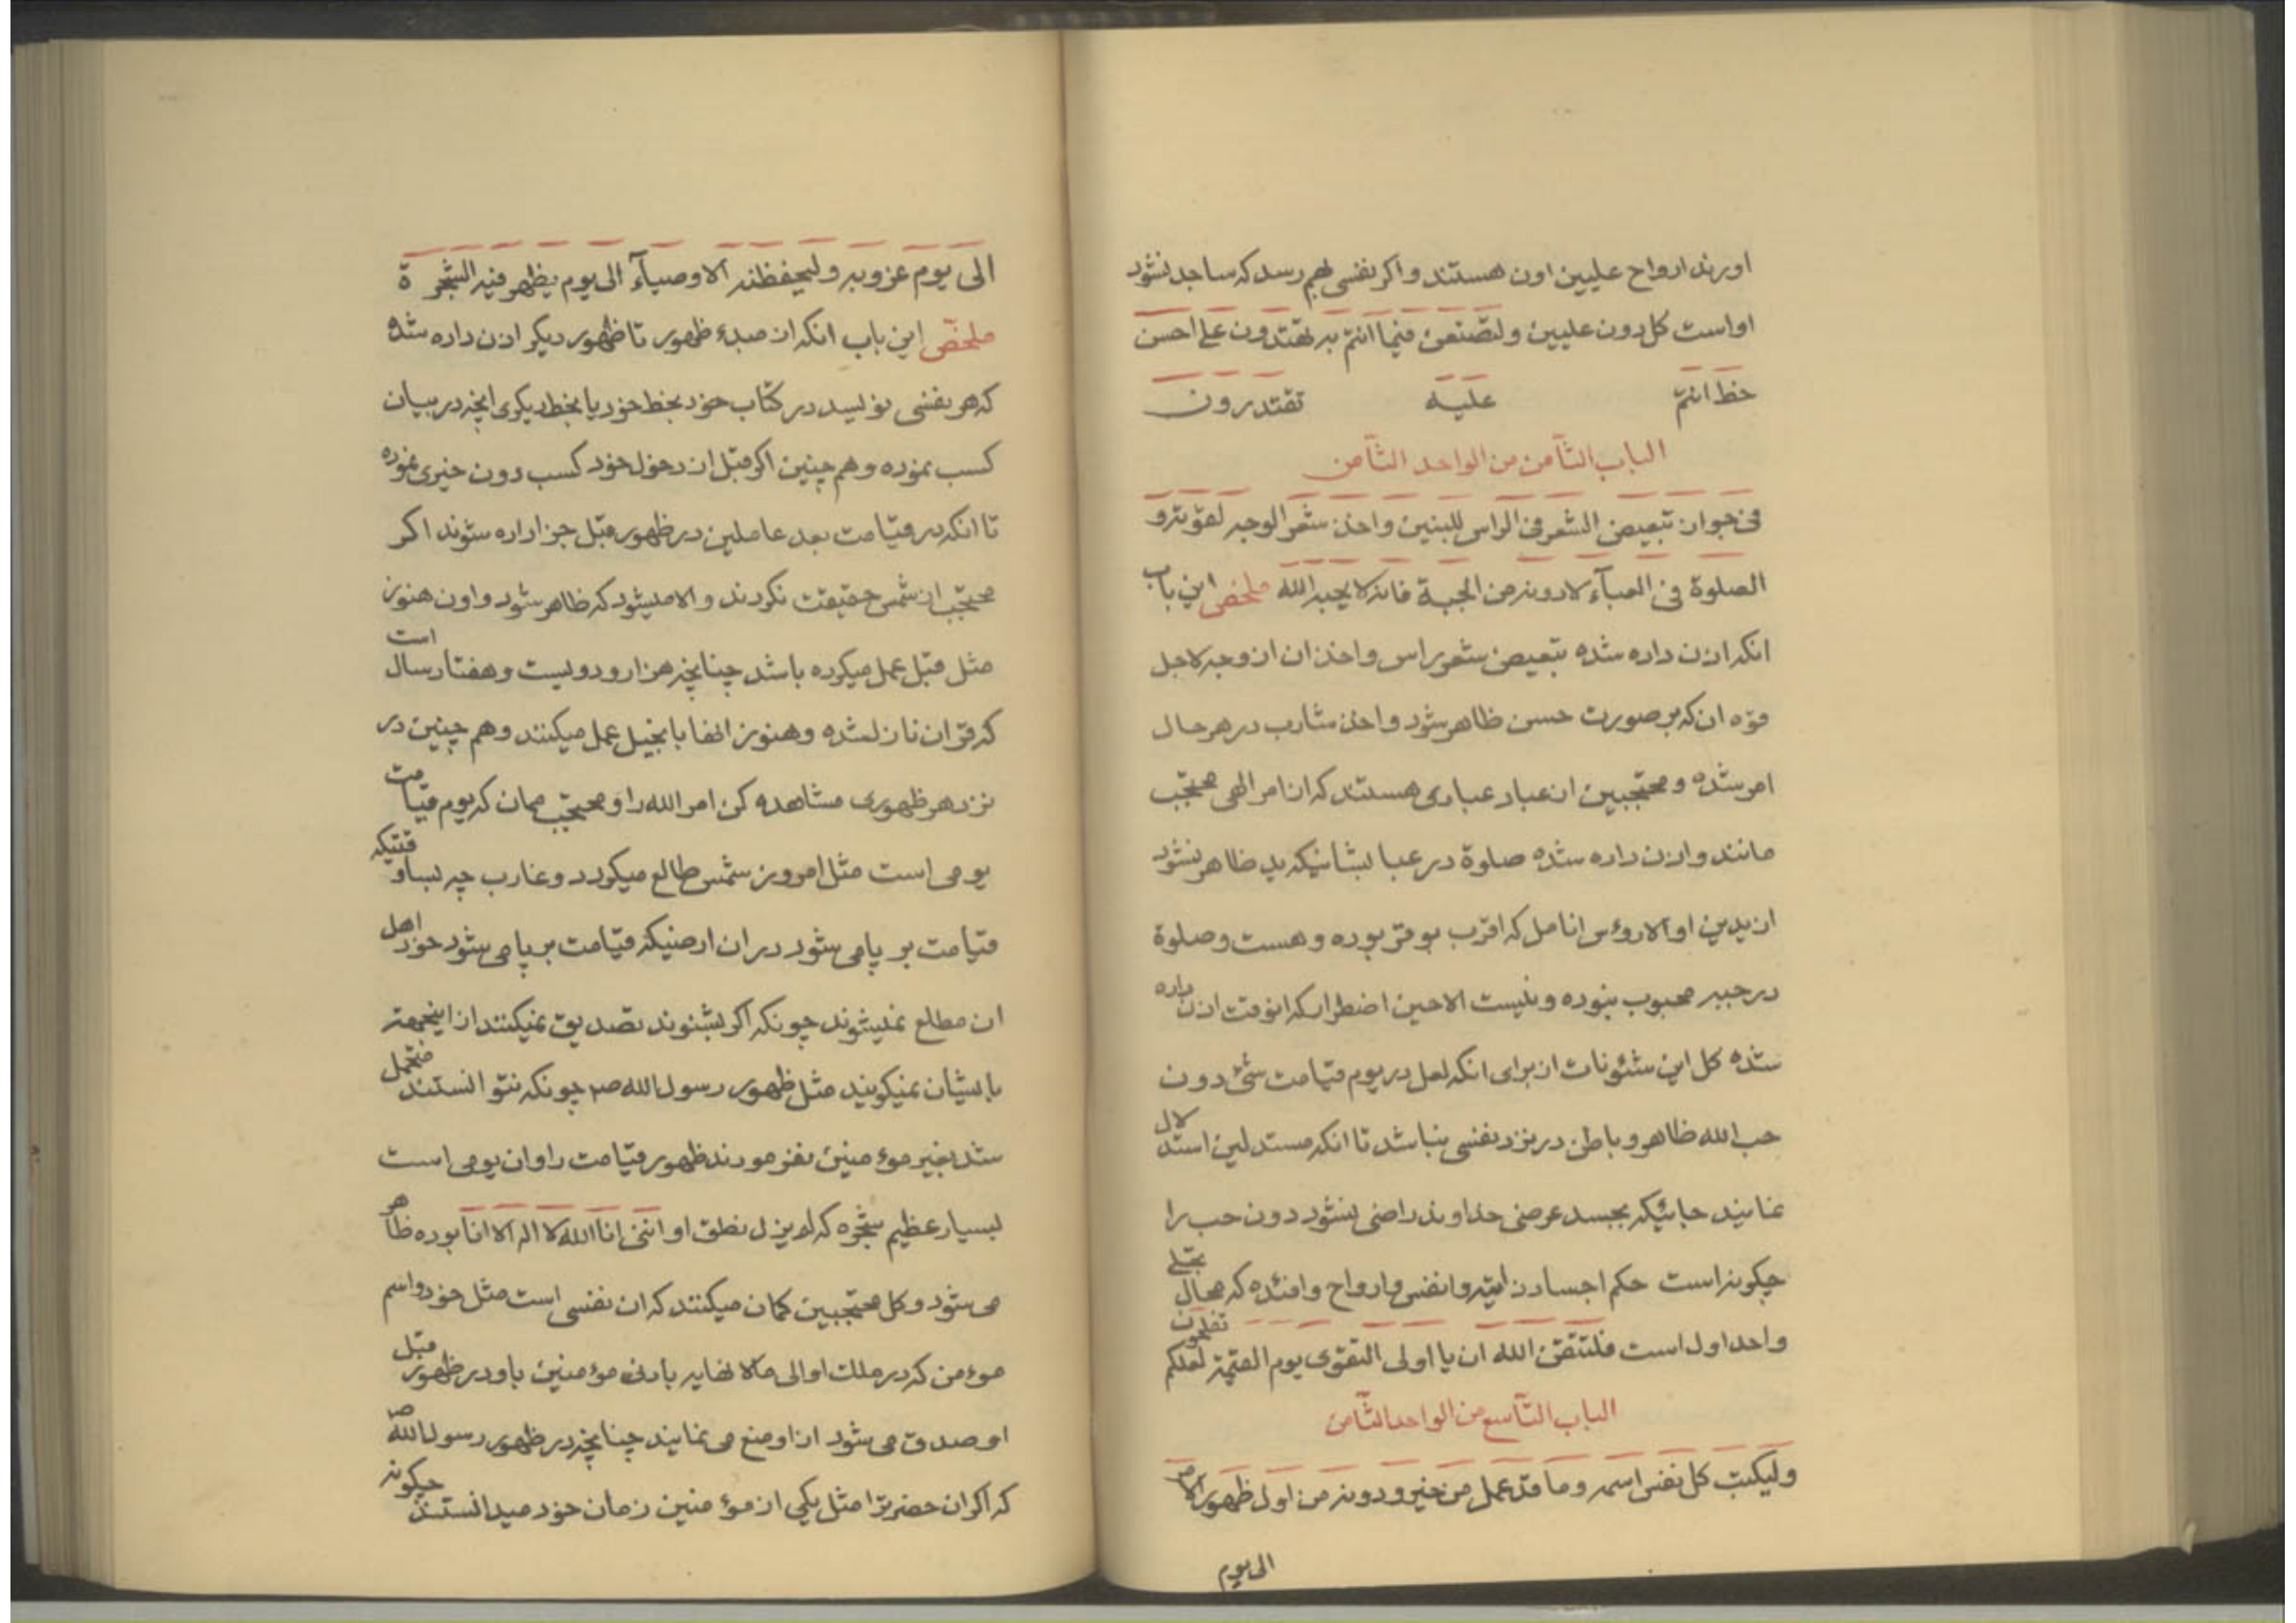 اورند ارواح علیین اون هستند و اکر نفسی بهم رسد که ساجد نشود
او است کل دون علیین و لتصنعن فیما انتم به تقتدرون علی احسن
خط انتم علیه تقتدرون
الباب الثامن من الواحد الثامن
فی جواز تبعیض الشعر فی الراس للبنین و اخذ شعر الوجه لقوته و
الصلوة فی العبآء لا دونه من الجبة فانه لا یحبه الله ملخص این باب
انکه اذن داده شده تبعیض شعر راس و اخذ ان از وجه لاجل
قوه ان که بر صورت حسن ظاهر شود و اخذ شارب در هر حال
امر شده و محتجبین از عباد عبادی هستند که از امر الهی محتجب
مانند و اذن داده شده صلوة در عبا بشانیکه ید ظاهر نشود
از یدین او الا رؤس انامل که اقرب بوقر بوده و هست و صلوة
در جبه محبوب نبوده و نیست الا حین اضطرار که انوقت اذن داده
شده کل این شئونات از برای انکه لعل در یوم قیامت شئ دون
حب الله ظاهر و باطن در نزد نفسی نباشد تا انکه مستدلین استدلال
نمایند جائیکه بجسد عرضی خداوند راضی نشود دون حب را
چکونه است حکم اجساد ذاتیه و انفس و ارواح و افئده که محال تجلی
واحد اول است فلتتقن الله ان یا اولی التقوی یوم القیمة لعلکم تفلحون
الباب التاسع من الواحد الثامن
ولیکتب کل نفس اسمه و ما قد عمل من خیر و دونه من اول ظهور الامر
الی یوم
الی یوم عزوبه ولیحفظنه الاوصیآء الی یوم یظهر فیه الشجرة
ملخص این باب انکه از مبدء ظهور تا ظهور دیکر اذن داده شده
که هر نفسی نویسد در کتاب خود بخط خود یا بخط دیکری انچه در بیان
کسب نموده و هم چنین اکر قبل از دخول خود کسب دون خیری نموده
تا انکه در قیامت بعد عاملین در ظهور قبل جزا داده شوند اکر
محتجب از شمس حقیقت نکردند و الا میشود که ظاهر شود و اون هنوز
مثل قبل عمل میکرده باشد چنانچه هزار و دویست و هفتاد سال است
که قران نازل شده و هنوز انها بانجیل عمل میکنند و هم چنین در
نزد هر ظهوری مشاهده کن امر الله را و محتجب ممان که یوم قیامت
یومی است مثل امروز شمس طالع میکردد و غارب چه بسا وقتیکه
قیامت بر پا می شود در ان ارضیکه قیامت بر پا می شود خود اهل
ان مطلع نمیشوند چونکه اکر بشنوند تصدیق نمیکنند از اینجهة
بایشان نمیکویند مثل ظهور رسول الله صم چونکه نتوانستند متحمل
شد بغیر مؤمنین نفرمودند ظهور قیامت را و ان یومی است
بسیار عظیم شجره که لم یزل نطق او اننی انا الله لا اله الا انا بوده ظاهر
می شود و کل محتجبین کمان میکنند که ان نفسی است مثل خود و اسم
مؤمن که در ملک او الی مالا نهایه بادنی مؤمنین باو در ظهور قبل
او صدق می شود از او منع می نمایند چنانچه در ظهور رسول الله ص
که اکر ان حضرترا مثل یکی از مؤمنین زمان خود میدانستند چکونه